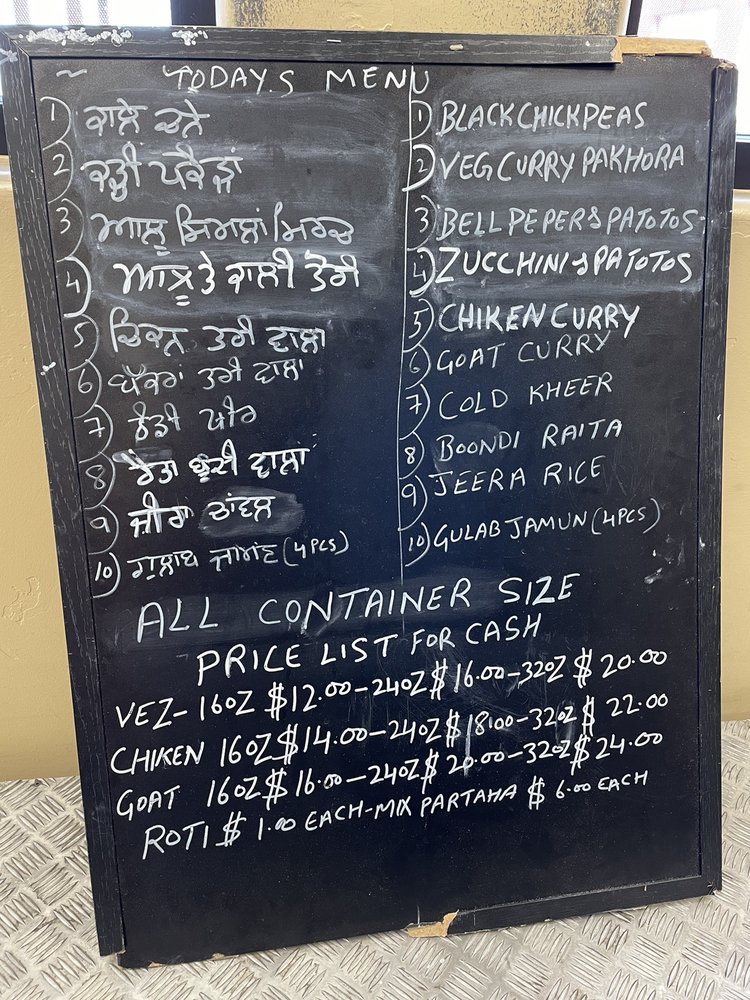 TODAY.S MENU
1 ਕਾਲੇ ਚਨੇ
2 ਕੜ੍ਹੀ ਪਕੌੜਾਂ
3 ਆਲੂ ਸਿਮਲਾਂ ਮਿਰਚ
4 ਆਲੂ ਤੇ ਕਾਲੀ ਤੋਰੀ
5 ਚਿਕਨ ਤਰੀ ਵਾਲਾ
6 ਬੱਕਰਾਂ ਤਰੀ ਵਾਲਾ
7 ਠੰਡੀ ਖੀਰ
8 ਰੈਤਾ ਬੂੰਦੀ ਵਾਲਾ
9 ਜੀਰਾ ਚਾਂਵਲ
10 ਗੁਲਾਬ ਜਾਮਨ (4 PCS)
1 BLACK CHICKPEAS
2 VEG CURRY PAKHORA
3 BELL PEPER & PATOTOS
4 ZUCCHINI & PATOTOS
5 CHIKEN CURRY
6 GOAT CURRY
7 COLD KHEER
8 BOONDI RAITA
9 JEERA RICE
10 GULAB JAMUN (4 PCS)
ALL CONTAINER SIZE
PRICE LIST FOR CASH
VEZ- 16OZ $12.00-24OZ $16.00-32OZ $20.00
CHIKEN 16OZ $14.00-24OZ $18.00-32OZ $22.00
GOAT 16OZ $16.00-24OZ $20.00-32OZ $24.00
ROTI $1.00 EACH-MIX PARTAHA $6.00 EACH